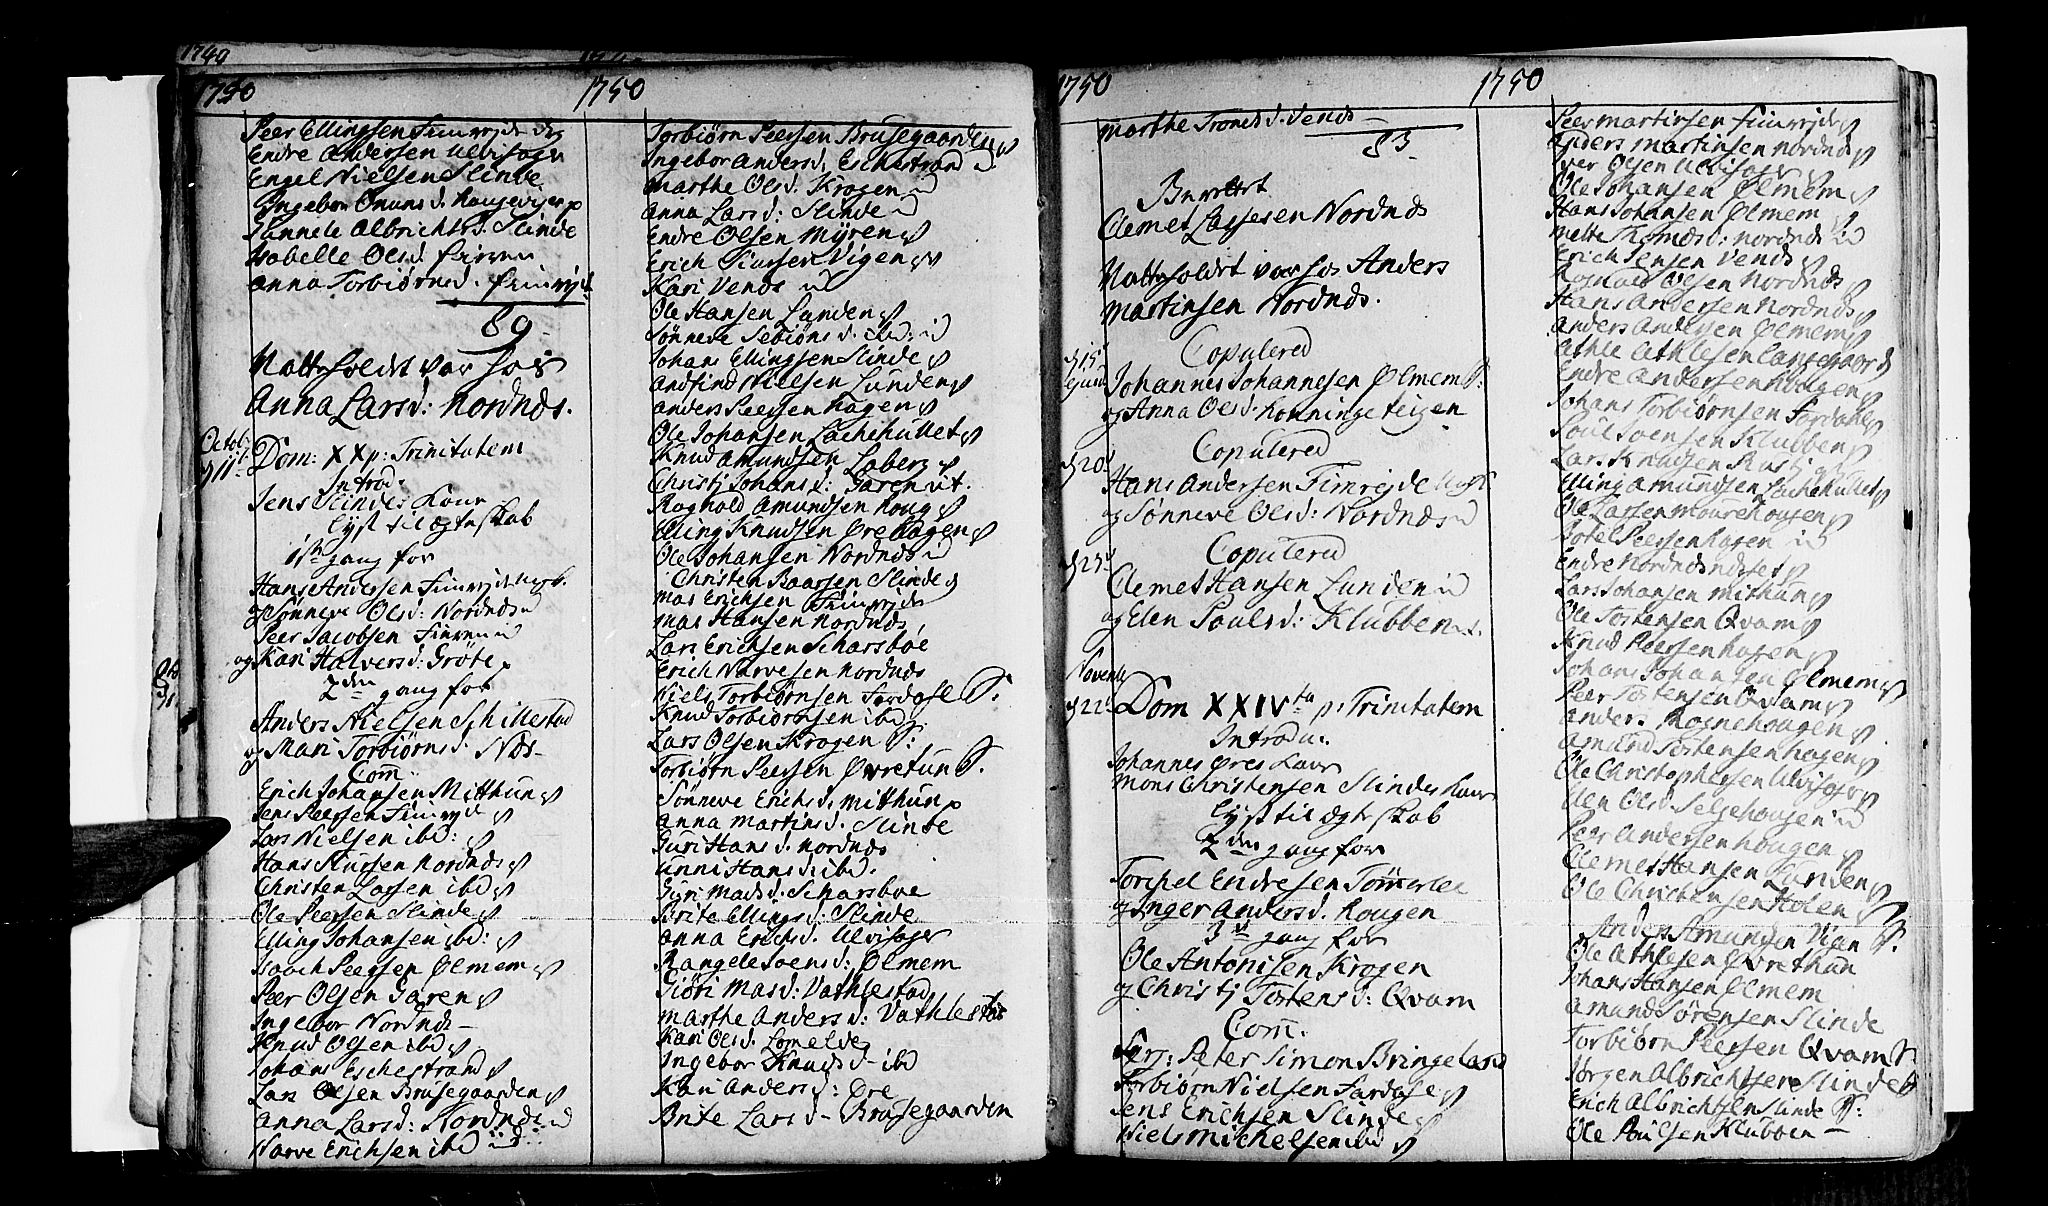 1740
1750 1750
Peer Ellingsen Fimrejte
Endre Andersen Ulvisager
Engel Nielsen Slinde
Ingebor Omunsd. Hougevigen
Sunnele Albrichtsd. Slinde
Isabelle Olsd.
Anna Torbiørnsd. Fimrejt
89
Natte holdt var hos
Anna Larsd: Nordnæs.
Octob:
d 11 t. Dom: XX p: Trinitatem
Introd.
Jens Slindes Kone
Lyst til ægteskab
1ste gang for
Hans Andersen Fimrejte
og Sønneve Olsd: Nordnæs
Peer Jacobsen
og Kari Halversd: Grøte
2den gang for
Anders Nielsen Schillestad
og Mari Torbiørnsd. Næs
Com̅
Erich Johansen Mitthun
Jens Peersen Fimrejt
Lars Nielsen ibd:
Hans Siursen Nordnæs
Christen Lassen ibd
Ole Peersen Slinde
Elling Johansen ibd:
Isach Peersen Ølmem
Peer Olsen Garen
Ingebor Nordnæs
Knud Olsen ibd
Johans Eschestrand
Lars Olsen Brusegaarden
Anna Larsd: Nordnæs
Narve Erichsen ibd
Torbiørn Peersen Brusegaarden
Ingebor Andersd: Eschestrand
Marthe Olsd: Krogen
Anna Larsd: Slinde
Endre Olsen Myren
Erich Siursen Vigen
Kari Vends
Ole Hansen Lunden
Sønneve Sebiørnsd: ibd:
Johans Ellingsen Slinde
Andfind Nielsen Lunden
Anders Peersen Hagen
Ole Johansen Lachehullet
Knud Amundsen Laberg
Christj Johansd: Garen
Roghold Amundsen Houg
Elling Knudsen Ørehagen
Ole Johansen Nordnæs
Christen Baarsen Slinde
Mas Erichsen Fimrejte
Mas Hansen Nordnæs
Lars Erichsen Scharsboe
Erich Narvesen Nordnæs
Niels Torbiørnsen Fardahl S:
Knud Torbiørnsen ibd
Lars Olsen Krogen S:
Torbiørn Peersen Øvretun S.
Sønneve Erichsd: Mitthun
Anna Martinsd: Slinde
Guri Hansd. Nordnæs
Unni Hansd: ibd.
Giøri Madsd. Scharsboe
Brite Ellingsd: Slinde
Anna Erichsd. Ulvisager
Rangele Joensd: Ølmem
Giøri Masd: Vathlestad
Marthe Andersd: Vathlestad
Kari Olsd. Lomelde
Ingebor Knudsd ibd
Kari Andersd: Øre
Brite Larsd Brusegaarden
1750 1750
Marthe Tronsd. Vends
83
Clemet Lassesen Nordnæs
Natte holdt var hos Anders
Martinsen Nordnæs.
d 15 Copulered
Johannes Johannesen Ølmem S:
og Anna Olsd. Konningsteigen
d 20 Copulered
Hans Andersen Fimrejde
og Sønneve Olsd: Nordnæs
d 25 Copulered
Clemet Hansen Lunden
og Elen Poulsd: Klubben
Novemb
d 22 Dom XXIV ta p: Trinitatem
Introdu.
Johannes Øres Kone
Mons Christensen Slindes Kone
Lyst til ægteskab
2den gang for
Torspel Endresen Tømmerlee
og Inger Andersd. Hougen
3die gang for
Ole Antonisen Krogen
og Christj Tostensd: Qvam
Com̅.
Sgrs: Peter Simon Bringeland
Torbiørn Nielsen Fardahl
Jens Erichsen Slinde
Niels Michelsen ibd
Peer Martinsen Fimrejte
Anders Martinsen Nordnæs
Iver Olsen Ulvisager
Ole Johansen Ølmem
Hans Johansen Ølmem
Mette Tronsd: Nordnæs
Erich Jensen Vends
Rognald Olsen Nordnæs
Hans Andersen Nordnæs
Anders Andersen Ølmem
Athle Athlesen
Endre Andersen Hougen
Johans Torbiørnsen Fardahl
Poul Joensen Klubben
Lars Knudsen
Elling Amundsen Lachehullet
Ole Larsen Mourehougen
Botel Peersen Hagen
Endre Nordnæs
Lars Johansen Mithun
Ole Tostensen Qvam
Knud Peersen Hagen
Johans Johansen Ølmem
Peer Tostensen Qvam
Anders Rognehougen
Amund Tostensen Hagen
Ole Christophersen Ulvisager
Elen Olsd. Selsehougen
Peer Andersen Hougen
Clemet Hansen Lunden
Ole Christensen Holen
Anders Amunsen Vigen S.
Ole Athlesen Øvrethun
Johans Hansen Ølmem
Amund Sørensen Slinde
Torbiørn Peersen Qvam S.
Jørgen Albrichtsen Slinde
Erich Albrichtsen Slinde S:
Ole Poulsen Klubben